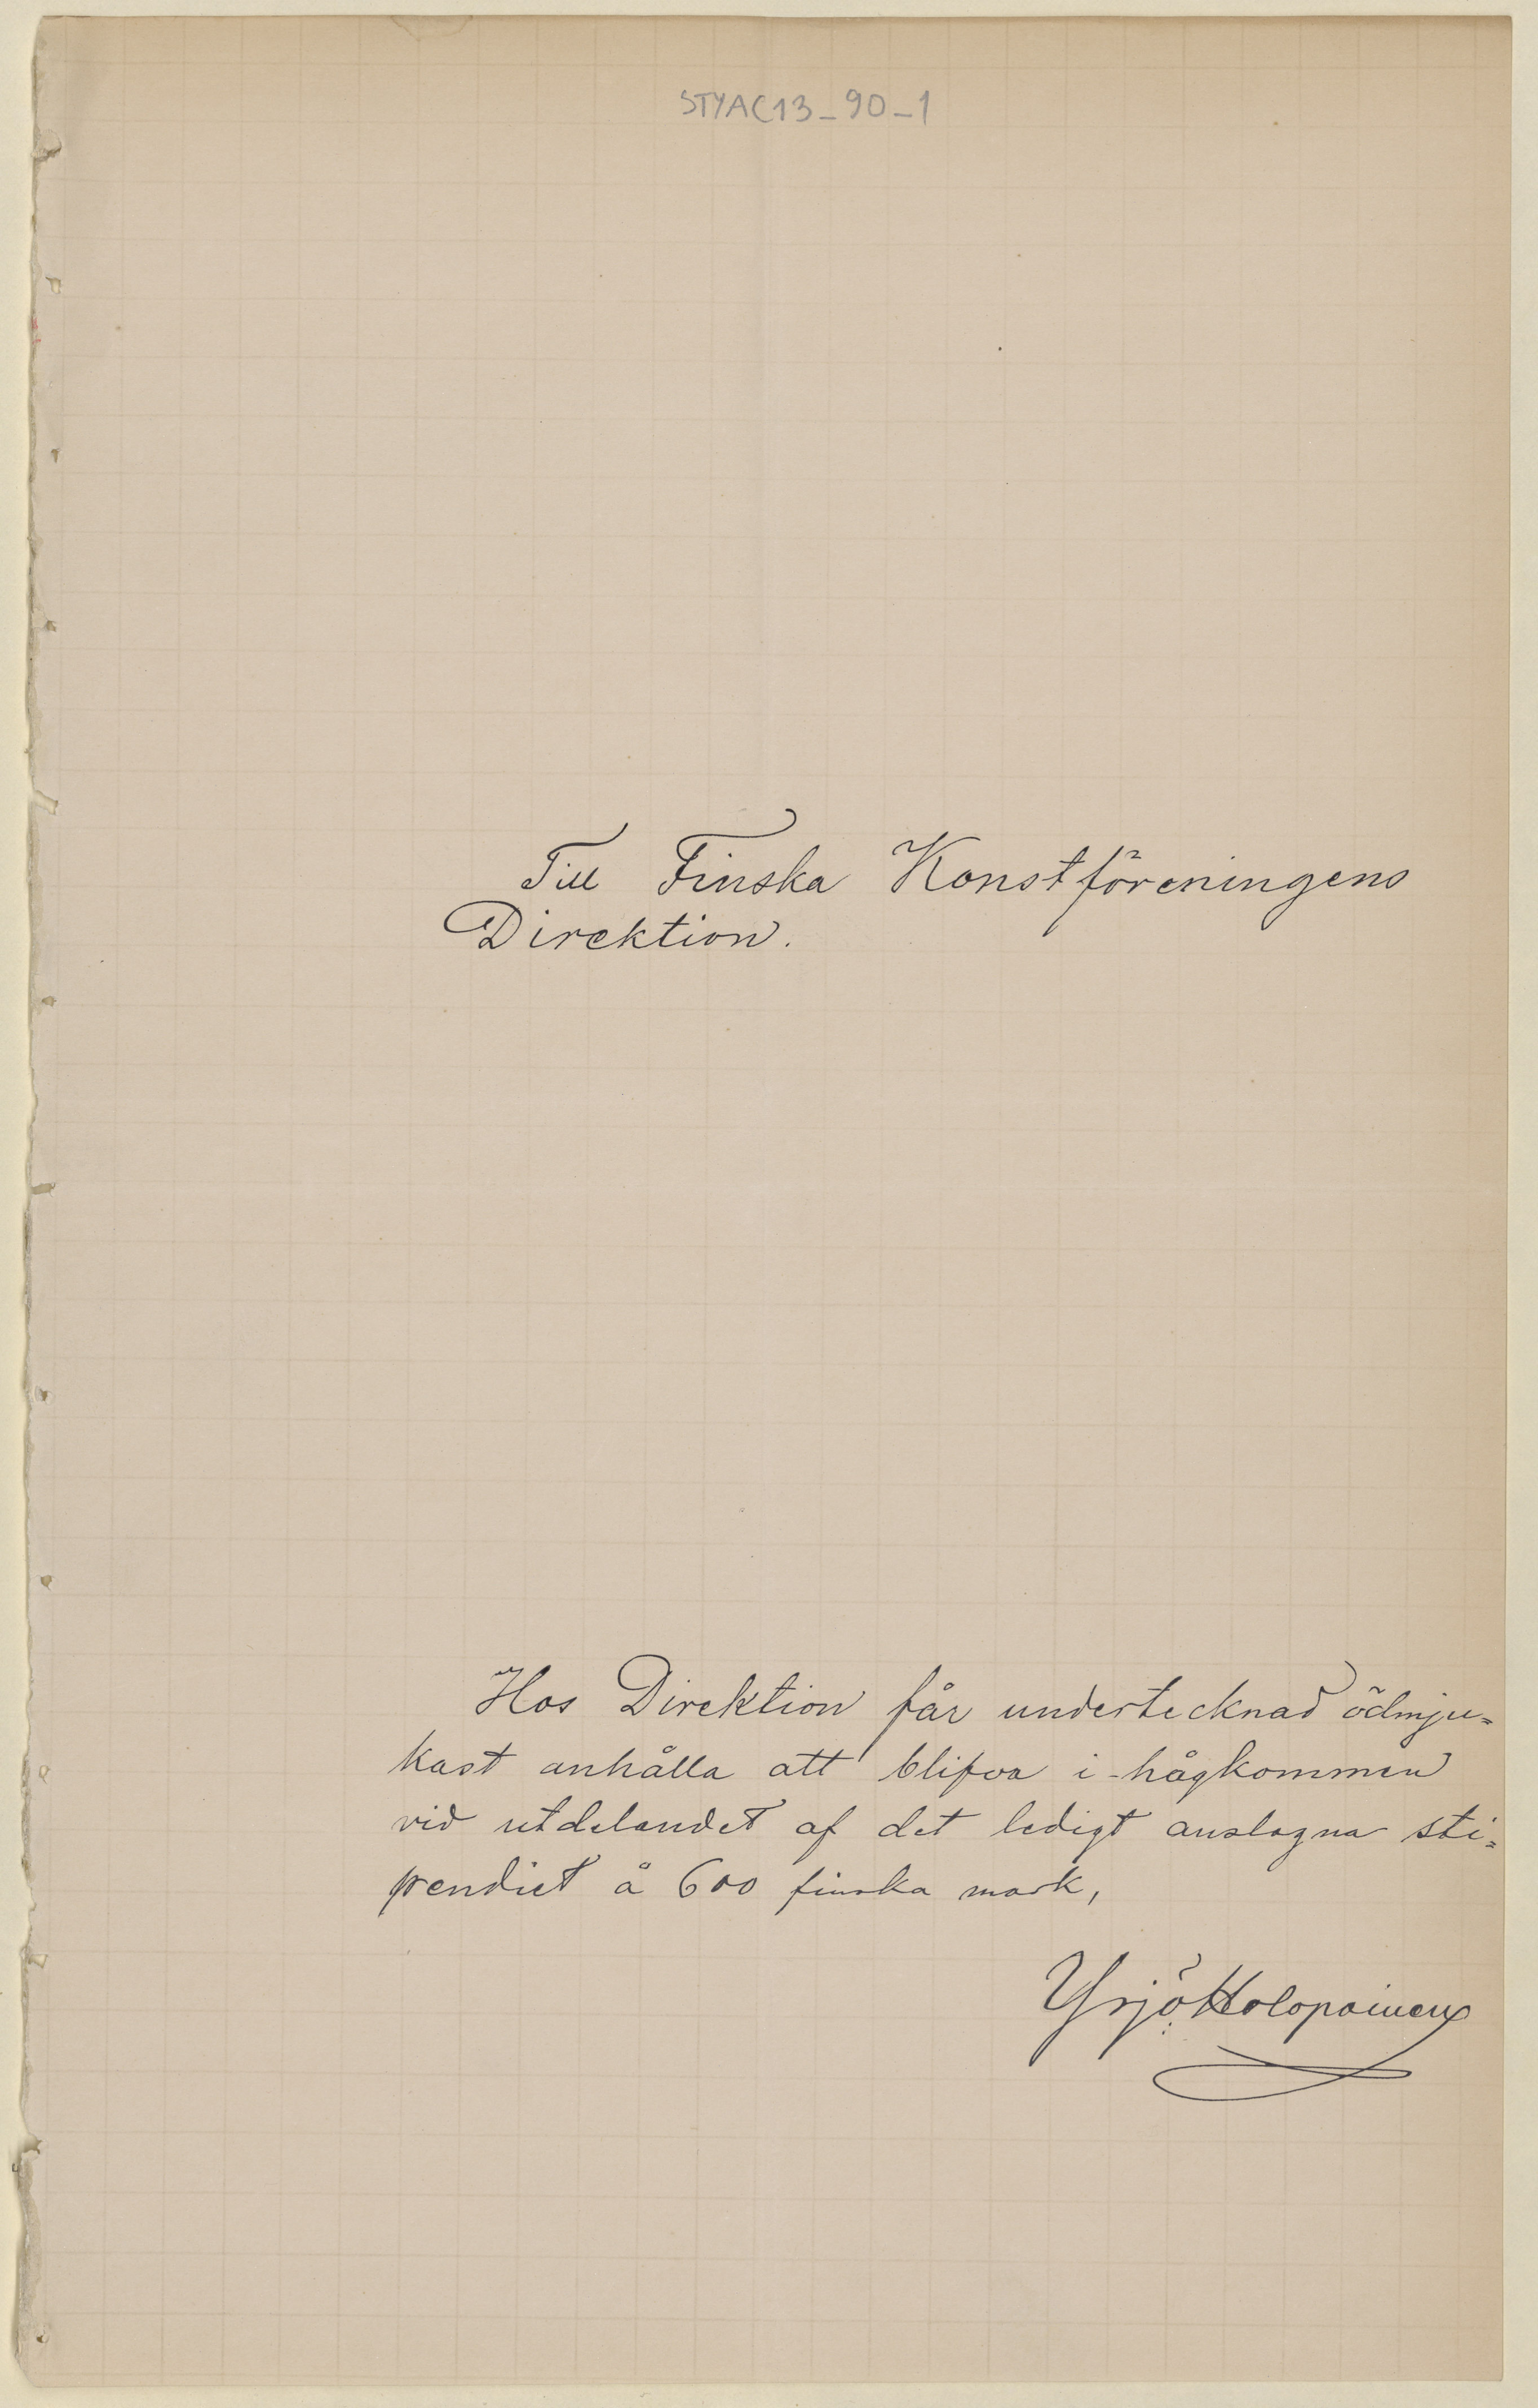 STYAC13_90_1
Till Finska Konstföreningens
Direktion.
Hos Direktion får undertecknad ödmju=
kast anhålla att blifva i-hågkommen
vid utdelandet af det ledigt anslagna sti=
pendiet å 600 finska mark,
Yrjö Holopainen